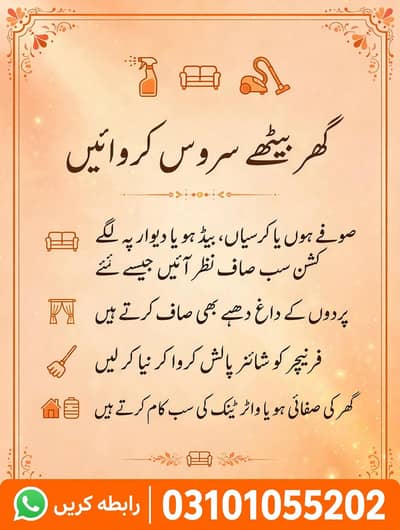 گھر بیٹھے سروس کروائیں
صوفے ہوں یا کرسیاں، بیڈ ہو یا دیوار پہ لگے
کشن سب صاف نظر آئیں جیسے نئے
پردوں کے داغ دھبے بھی صاف کرتے ہیں
فرنیچر کو شائنر پالش کروا کر نیا کر لیں
گھر کی صفائی ہو یا واٹر ٹینک کی سب کام کرتے ہیں
رابطہ کریں | 03101055202